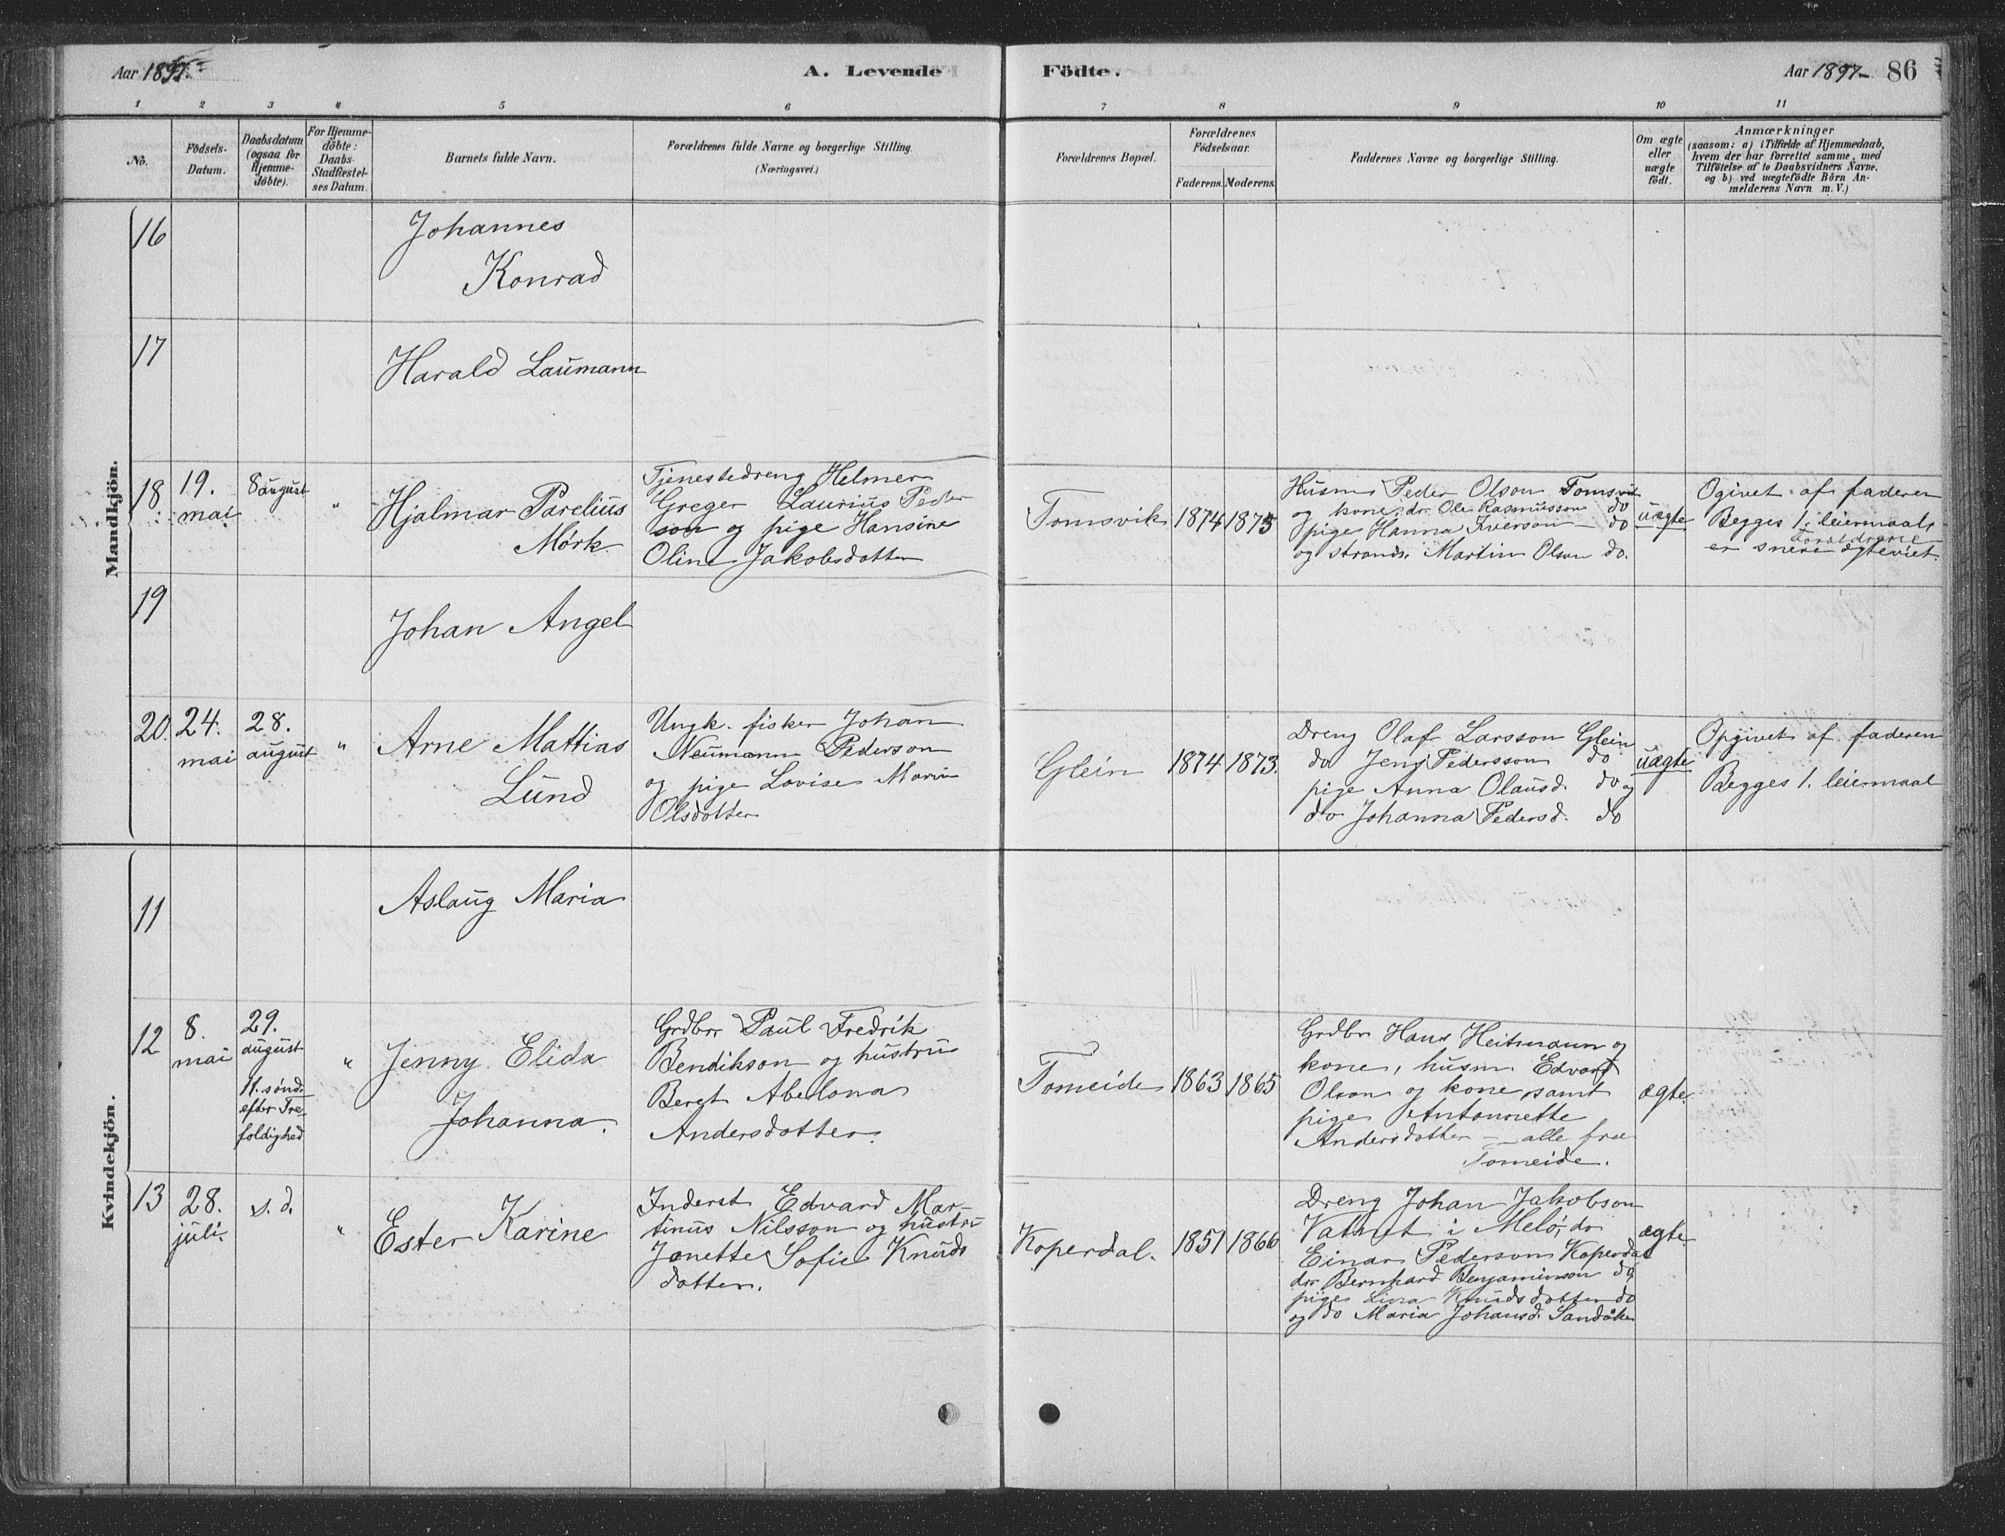 Aar 1897.
A. Levende
Födte.
Aar 1897
86
1 2 3 4 5 6 7 8 9 10 11
No.
Födsels-
Datum.
Daabsdatum
(ogsaa for
Hjemme-
döbte).
For Hjemme-
döbte:
Daabs-
Stadfæstel-
ses Datum.
Barnets fulde Navn.
Forældrenes fulde Navne og borgerlige Stilling.
(Næringsvei.)
Forældrenes Bopæl.
Forældrenes
Födselsaar.
Faderens. Moderens.
Faddernes Navne og borgerlige Stilling.
Om ægte
eller
uægte
födt.
Anmærkninger
(saasom: a) i Tilfælde af Hjemmedaab,
hvem der har forrettet samme, med
Tilföielse af to Daabsvidners Navne,
og b) ved uægtefödte Börn An-
melderens Navn m. V.)
Mandkjön.
16
Johannes
Konrad
17
Harald Laumann
18
19.
mai
8 august
"
Hjalmar Parelius
Mörk.
Tjenestedreng Helmer
Greger Laurius Peder
son og pige Hansine
Oline Jakobsdotter
Tomsvik
1874
1875
Husm Peder Olson Tomsvik
og kone, dr. Ole Rasmusson do
pige Hanna Iverson do
og strands. Martin Olson do.
uægte
Ogivet af faderen
Begges 1. leiermaal,
foraldrene
er senere ægteviet.
19
Johan Angel
20.
24.
mai
28.
august
"
Arne Mattias
Lund
Ungk. fisker Johan
Neumann Pederson
og pige Lovise Marie
Olsdotter
Glein
1874
1873.
Dreng Olaf Larsson Glein
do Jens Pedersson do
pige Anna Olausd. do og
do Johanna Pedersd. do
uægte
Opgivet af faderen
Begges 1. leiermaal
Kvindekjön.
11
Aslaug Maria
12
8.
mai
29.
august
11. sönd.
efter Tre-
foldighed
"
Jenny Elida
Johanna.
Grdbr Paul Fredrik
Bendikson og hustru
Beret Abelona
Andersdotter.
Tomeide
1863
1865
Grdbr Hans Heitmann og
kone, husm. Edvard
Olson og kone samt
pige Antonnette
Andersdotter – alle fra
Tomeide.
ægte.
13
28.
juli.
s. d.
"
Ester Karine
Inderst Edvard Mar-
tinus Nilsson og hustru
Jonette Sofie Knuds
dotter.
Koperdal.
1851
1866
Dreng Johan Jakobson
Vatnet i Melö, do
Einar Pederson Koperdal
dr Bernhard Benjaminson do,
pige Lina Knudsdotter do
og do Maria Johansd. Sandåker
ægte.